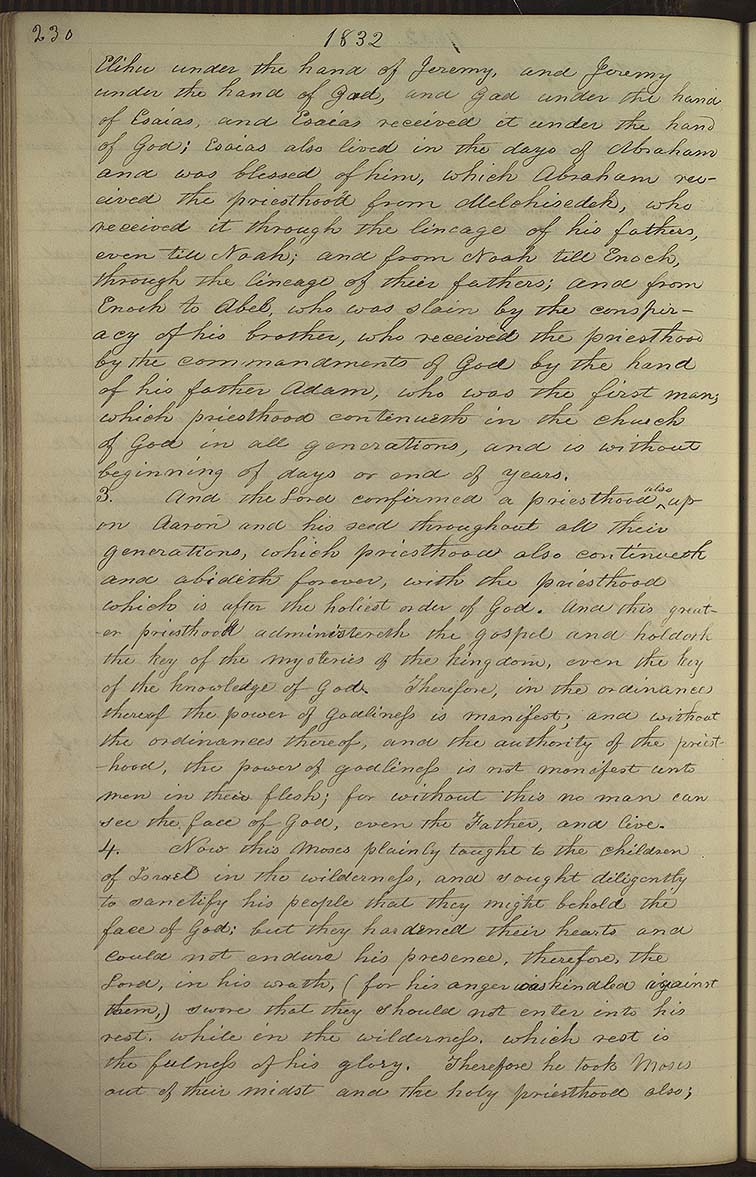 230
1832
Elihu under the hand of Jeremy, and Jeremy
under the hand of Gad, and Gad under the hand
of Esaias, and Esaias received it under the hand
of God; Esaias also lived in the days of Abraham
and was blessed of him, which Abraham re-
ceived the priesthood from Melchisedek, who
received it through the lineage of his fathers,
even till Noah; and from Noah till Enoch,
through the lineage of their fathers; and from
Enoch to Abel, who was slain by the conspir-
acy of his brother, who received the priesthood
by the commandments of God by the hand
of his father Adam, who was the first man;
which priesthood continueth in the church
of God in all generations, and is without
beginning of days or end of years.
3. And the Lord confirmed a priesthood also up-
on Aaron and his seed throughout all their
generations, which priesthood also continueth
and abideth forever, with the priesthood
which is after the holiest order of God. And this great-
-er priesthood administereth the gospel and holdeth
the key of the mysteries of the kingdom, even the key
of the knowledge of God. Therefore, in the ordinances
thereof the power of godliness is manifest; and without
the ordinances thereof, and the authority of the priest-
-hood, the power of godliness is not manifest unto
men in their flesh; for without this no man can
see the face of God, even the Father, and live.
4. Now this Moses plainly taught to the children
of Israel in the wilderness, and sought diligently
to sanctify his people that they might behold the
face of God; but they hardened their hearts and
could not endure his presence, therefore, the
Lord, in his wrath, (for his anger was kindled against
them,) swore that they should not enter into his
rest, while in the wilderness, which rest is
the fulness of his glory. Therefore he took Moses
out of their midst and the holy priesthood also;